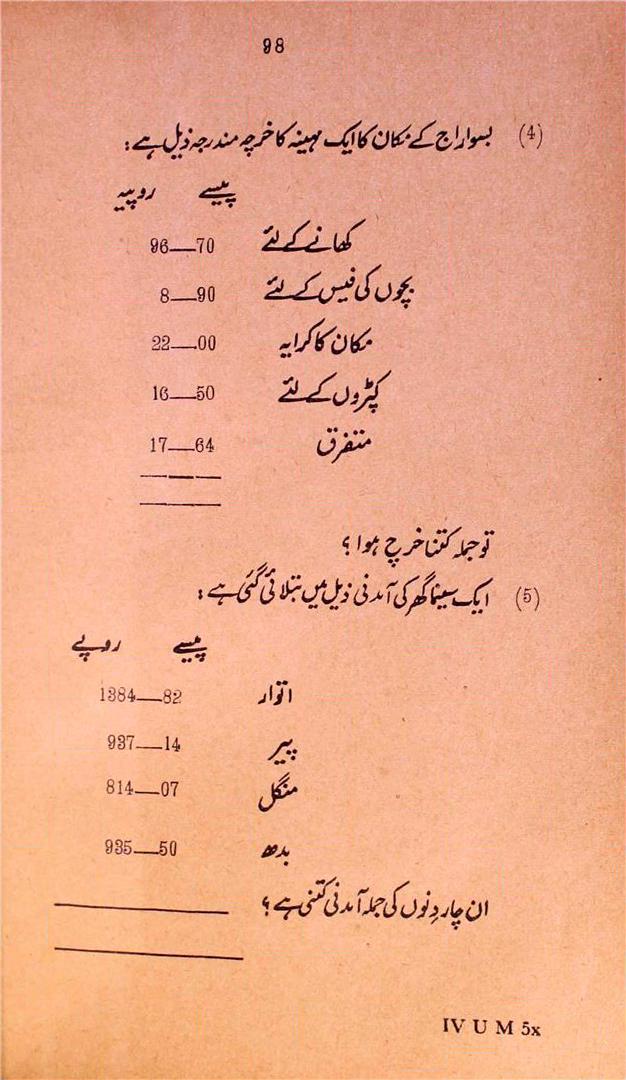 98
(4) بسواراج کے مکان کا ایک مہینہ کا خرچہ مندرجہ ذیل ہے :
پیسے روپیہ
کھانے کے لئے 96—70
بچوں کی فیس کے لئے 8—90
مکان کا کرایہ 22—00
کپڑوں کے لئے 16—50
متفرق 17—64
تو جملہ کتنا خرچ ہوا ؟
(5) ایک سینما گھر کی آمدنی ذیل میں بتلائی گئی ہے :
پیسے روپے
اتوار 1384—82
پیر 937—14
منگل 814—07
بدھ 935—50
ان چار دِنوں کی جملہ آمدنی کتنی ہے ؟
IV U M 5x